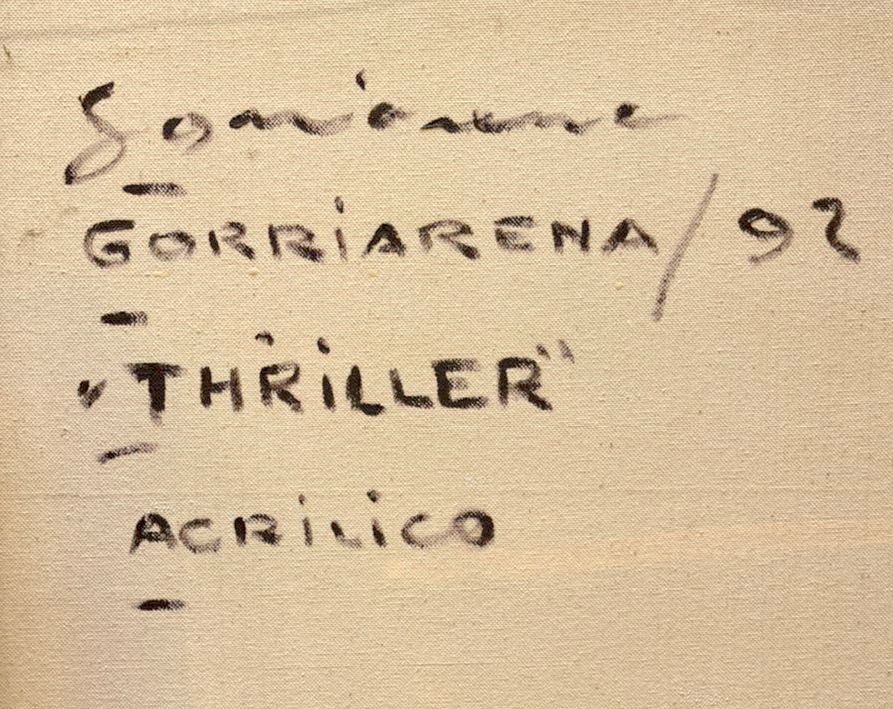 Gorriarena
GORRiARENA / 92
"THRiLLER"
ACRiLiCO